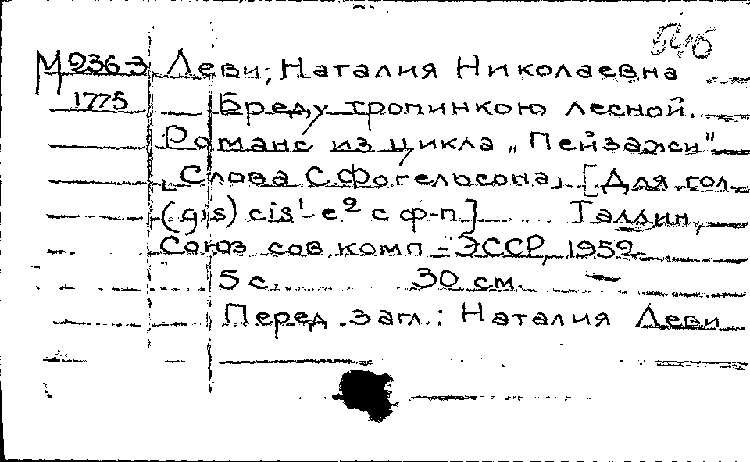 М 236-3 Леви, Наталия Николаевна
1775 Бреду тропинкою лесной.
Романс из цикла „Пейзажи"
Слова С. Фогельсона. [Для гол.
(gis) cis¹-e² с ф-п] Таллин,
Союз сов. комп - ЭССР, 1959.
5 с. 30 см.
Перед загл.: Наталия Леви